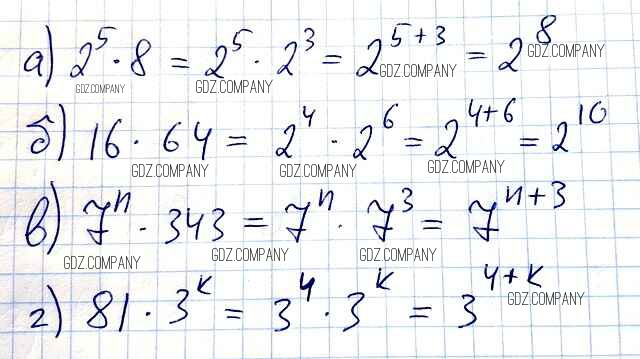 а) 2⁵ · 8 = 2⁵ · 2³ = 2⁵⁺³ = 2⁸
GDZ.COMPANY GDZ.COMPANY GDZ.COMPANY GDZ.COMPANY
б) 16 · 64 = 2⁴ · 2⁶ = 2⁴⁺⁶ = 2¹⁰
GDZ.COMPANY GDZ.COMPANY GDZ.COMPANY
в) 7ⁿ · 343 = 7ⁿ · 7³ = 7ⁿ⁺³
GDZ.COMPANY GDZ.COMPANY GDZ.COMPANY
г) 81 · 3ᵏ = 3⁴ · 3ᵏ = 3⁴⁺ᵏ
GDZ.COMPANY